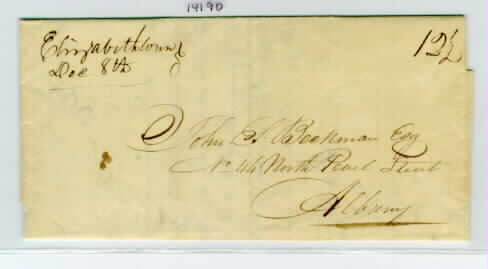 14190
Elizabethtown
Dec 8th
12½
John H Beekman Esq
No 44 North Pearl Street
Albany